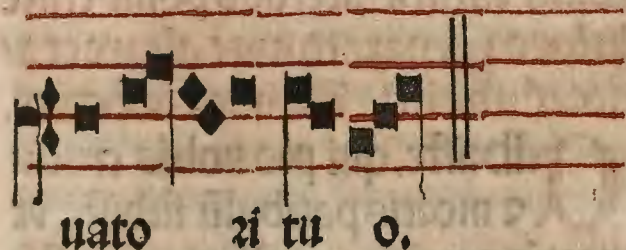 uato ꝛi tu o.